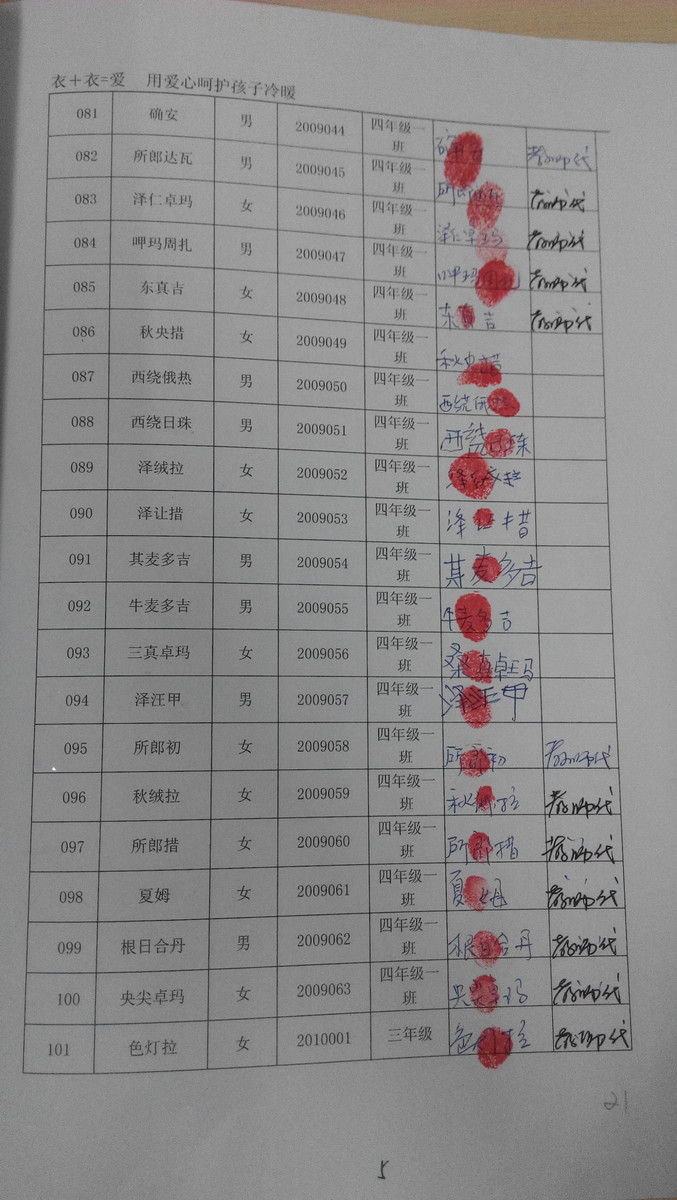 衣＋衣=爱 用爱心呵护孩子冷暖
081 确安 男 2009044 四年级一班 教师代
082 所郎达瓦 男 2009045 四年级一班 所郎达瓦 教师代
083 泽仁卓玛 女 2009046 四年级一班 泽仁卓玛 教师代
084 呷玛周扎 男 2009047 四年级一班 呷玛周扎 教师代
085 东真吉 女 2009048 四年级一班 东真吉 教师代
086 秋央措 女 2009049 四年级一班 秋央措
087 西绕俄热 男 2009050 四年级一班 西绕俄热
088 西绕日珠 男 2009051 四年级一班 西绕日珠
089 泽绒拉 女 2009052 四年级一班
090 泽让措 女 2009053 四年级一班 泽让措
091 其麦多吉 男 2009054 四年级一班 其麦多吉
092 牛麦多吉 男 2009055 四年级一班 牛麦多吉
093 三真卓玛 女 2009056 四年级一班 桑真卓玛
094 泽汪甲 男 2009057 四年级一班 泽汪甲
095 所郎初 女 2009058 四年级一班 所郎初 教师代
096 秋绒拉 女 2009059 四年级一班 秋绒拉 教师代
097 所郎措 女 2009060 四年级一班 所郎措 教师代
098 夏姆 女 2009061 四年级一班 夏姆 教师代
099 根日合丹 男 2009062 四年级一班 根日合丹 教师代
100 央尖卓玛 女 2009063 四年级一班 教师代
101 色灯拉 女 2010001 三年级 色灯拉 教师代
21
5